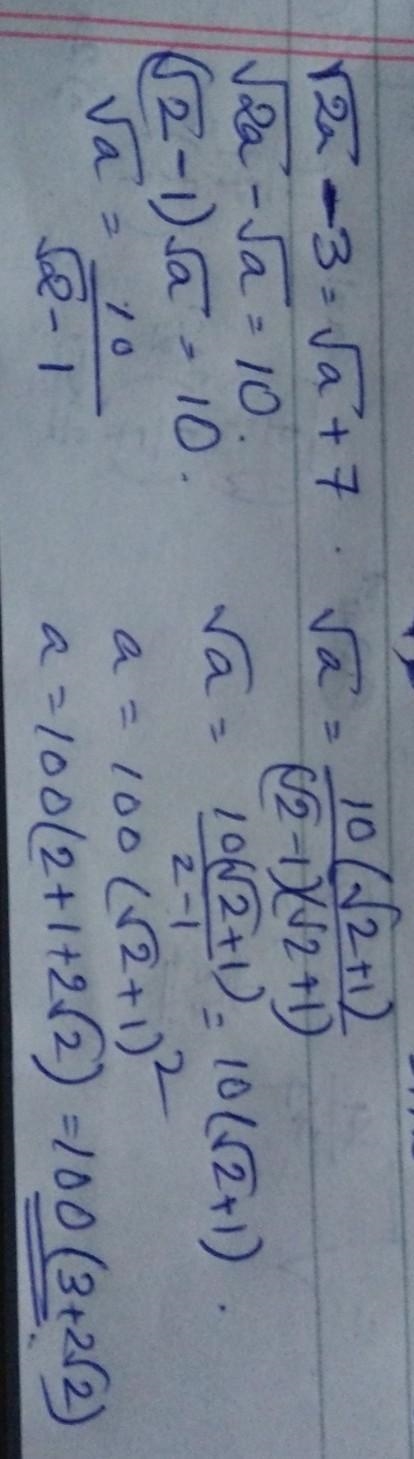 √2a - 3 = √a + 7.
√2a - √a = 10.
(√2 - 1)√a = 10.
√a = 10/(√2 - 1)
√a = 10(√2+1)/((√2-1)(√2+1))
√a = 10(√2+1)/(2-1) = 10(√2+1).
a = 100(√2+1)²
a = 100(2+1+2√2) = 100(3+2√2)